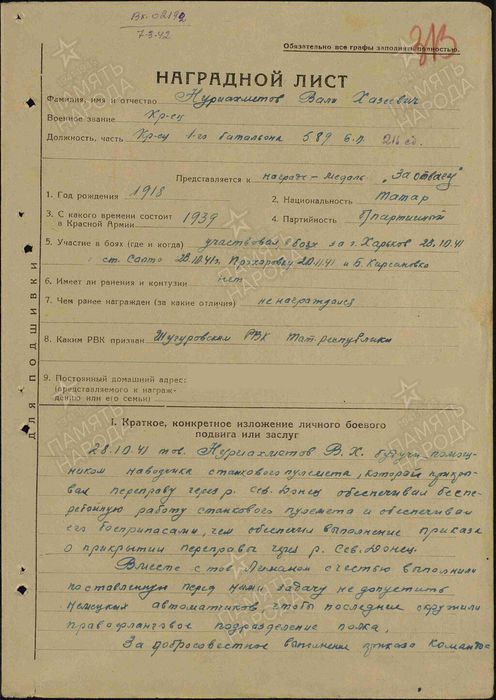 Вк. 02192
7-3-42
Обязательно все графы заполнять полностью.
313
НАГРАДНОЙ ЛИСТ
Фамилия, имя и отчество Нуриахметов Вали Хазеевич
Военное звание Кр-ец
Должность, часть Кр-ец 1-го батальона 589 с.п. 216 сд.
Представляется к награде - медаль "За отвагу"
1. Год рождения 1918
2. Национальность Татар
3. С какого времени состоит
в Красной Армии 1939
4. Партийность
5. Участие в боях (где и когда) участвовал в боях за г. Харьков 23.10.41
ст. 28.10.41г. Прохоровку 20.11.41 и Б. Кирсановка
6. Имеет ли ранения и контузии нет
7. Чем ранее награжден (за какие отличия) не награждался
8. Каким РВК призван Шугуровским РВК Татреспублики
9. Постоянный домашний адрес:
(представляемого к награж-
дению или его семьи)
ДЛЯ ПОДШИВКИ
I. Краткое, конкретное изложение личного боевого
подвига или заслуг
28.10.41 тов. Нуриахметов В.Х. будучи помощ-
ником наводчика станкового пулемета, который прикры-
вал переправу через р. Сев. Донец обеспечивал беспе-
ребойную работу станкового пулемета и обеспечивал
его боеприпасами, чем обеспечил выполнение приказа
о прикрытии переправы через р. Сев. Донец.
Вместе с тов. с честью выполнили
поставленную перед ними задачу не допустить
немецких автоматчиков, чтобы последние окружили
правофланговое подразделение полка.
За добросовестное приказа командо-
ПАМЯТЬ НАРОДА